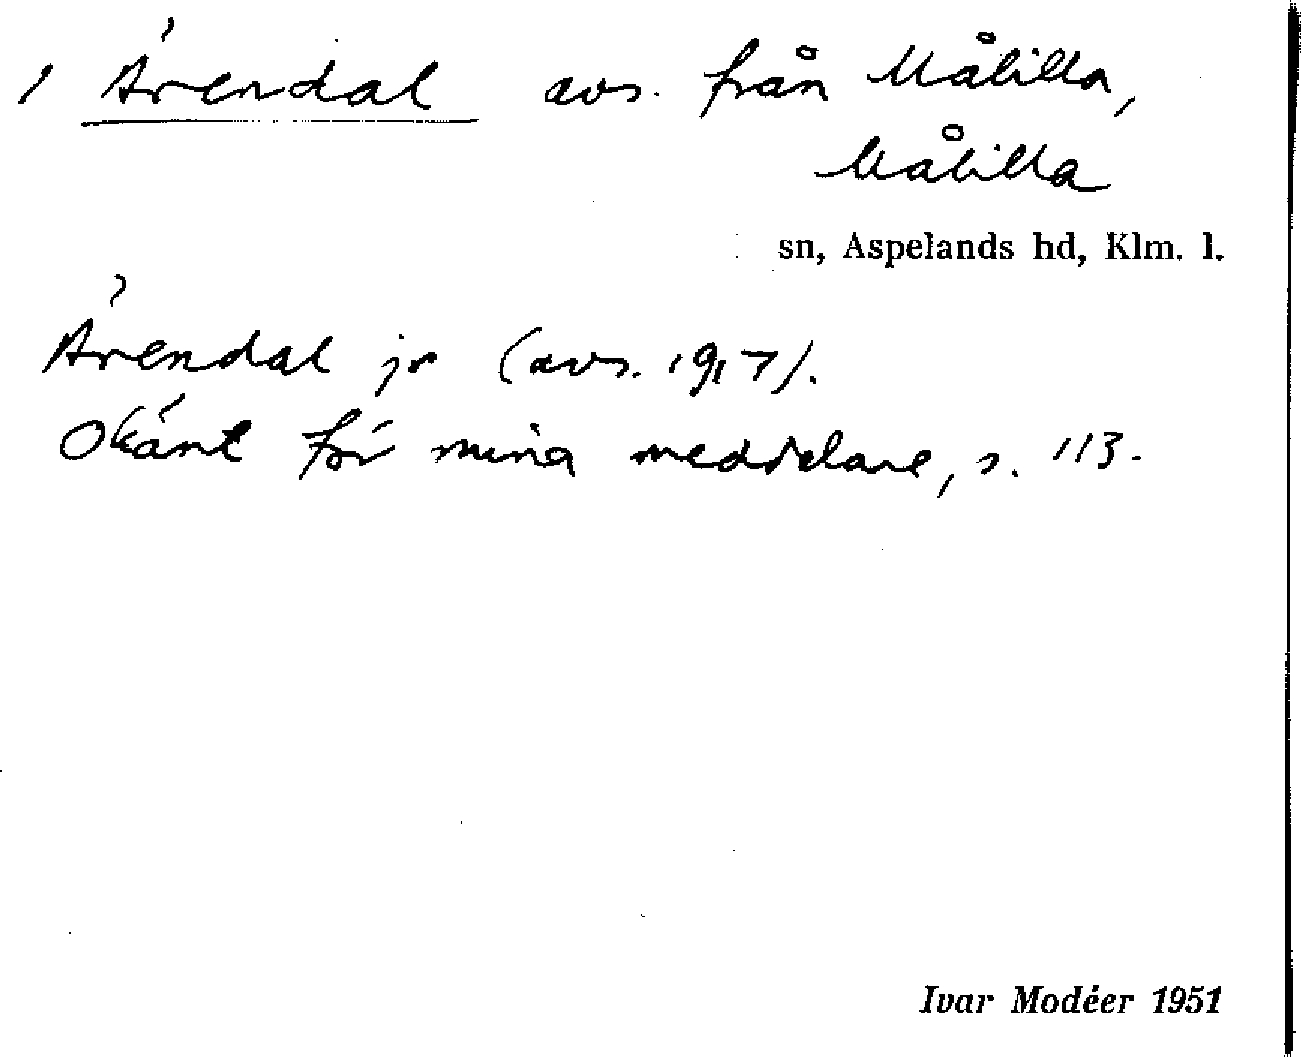 1 Ärendal avs. från Målilla,
Målilla
sn, Aspelands hd, Klm. l.
Ärendal jr (avs. 1917).
Okänt för mina meddelare, s. 113.
Ivar Modéer 1951